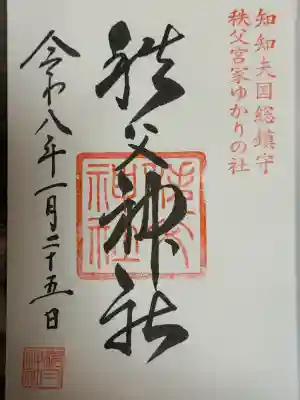 知知夫国総鎮守
秩父宮家ゆかりの社
秩父神社
令和八年一月二十五日